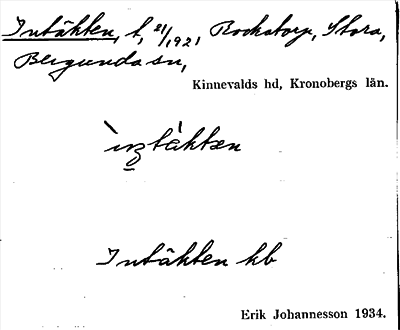 Intäkten, t, 21/1921 Rockatorp, Stora,
Bergunda sn,
Kinnevalds hd, Kronobergs län.
Intäkten kb
Erik Johannesson 1934.